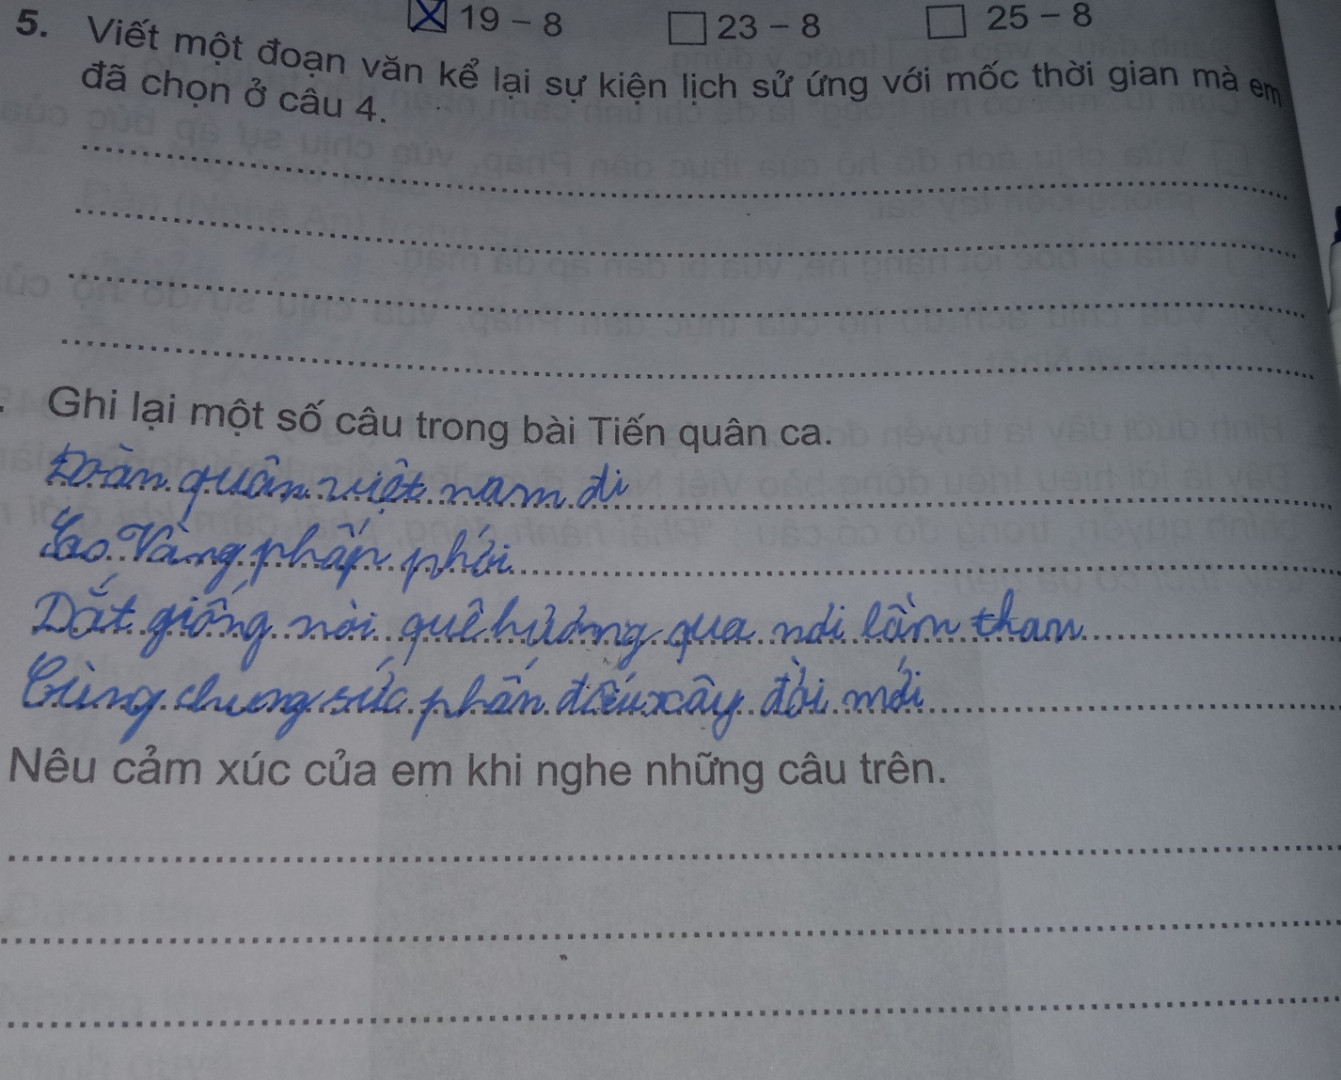 19 – 8 23 – 8 25 – 8
5. Viết một đoạn văn kể lại sự kiện lịch sử ứng với mốc thời gian mà em
đã chọn ở câu 4.
Ghi lại một số câu trong bài Tiến quân ca.
Đoàn quân việt nam đi
Sao Vàng phấp phới
Dắt giống nòi quê hương qua nơi lầm than
Cùng chung sức phấn đấu xây đời mới
Nêu cảm xúc của em khi nghe những câu trên.